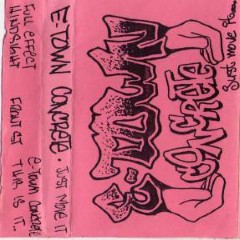 E-TOWN CONCRETE • JUST MOVE IT
FULL EFFECT
HINDSIGHT
FRONT ST
THIS IS IT..
E-TOWN CONCRETE
E-TOWN
CONCRETE